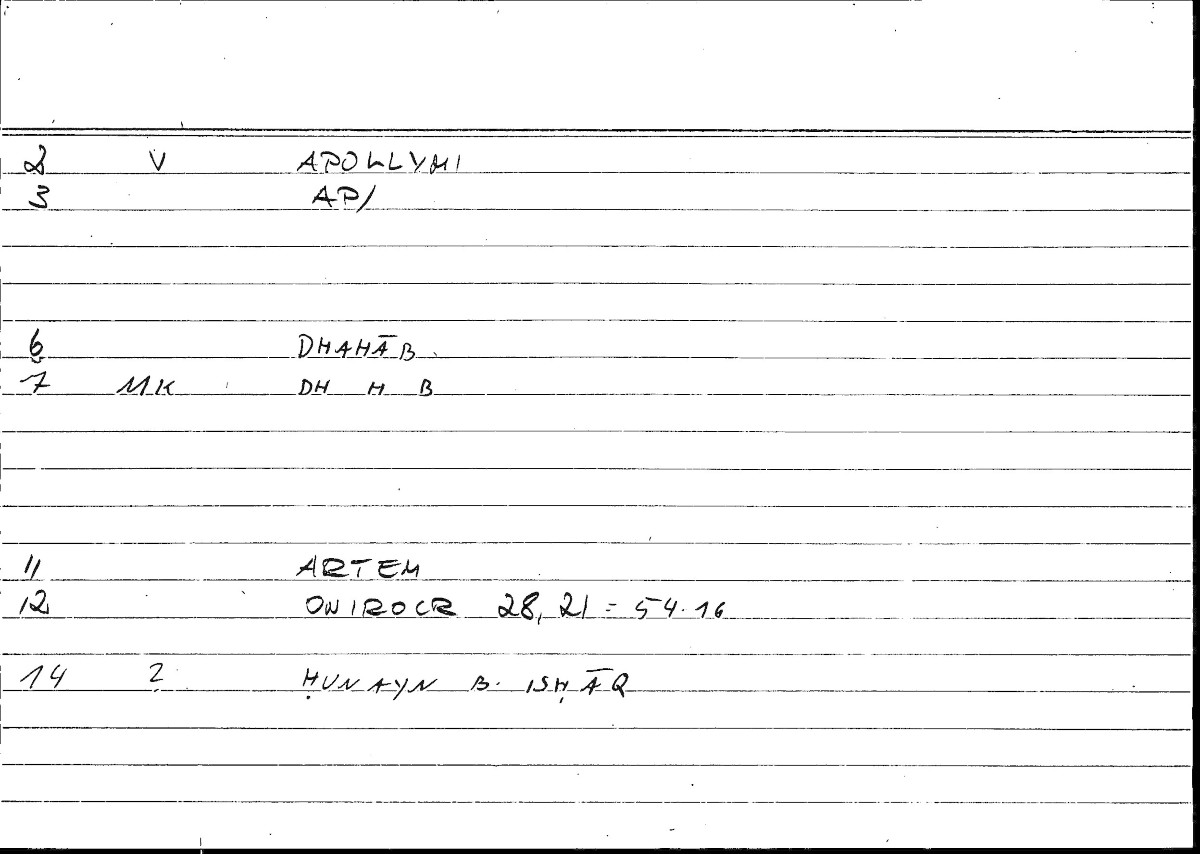 2 V APOLLYMI
3 AP/
6 DHAHĀB.
7 MK DH H B
11 ARTEM
12 ONIROCR 28, 21 = 54.16
14 2 ḤUNAYN B. ISḤĀQ